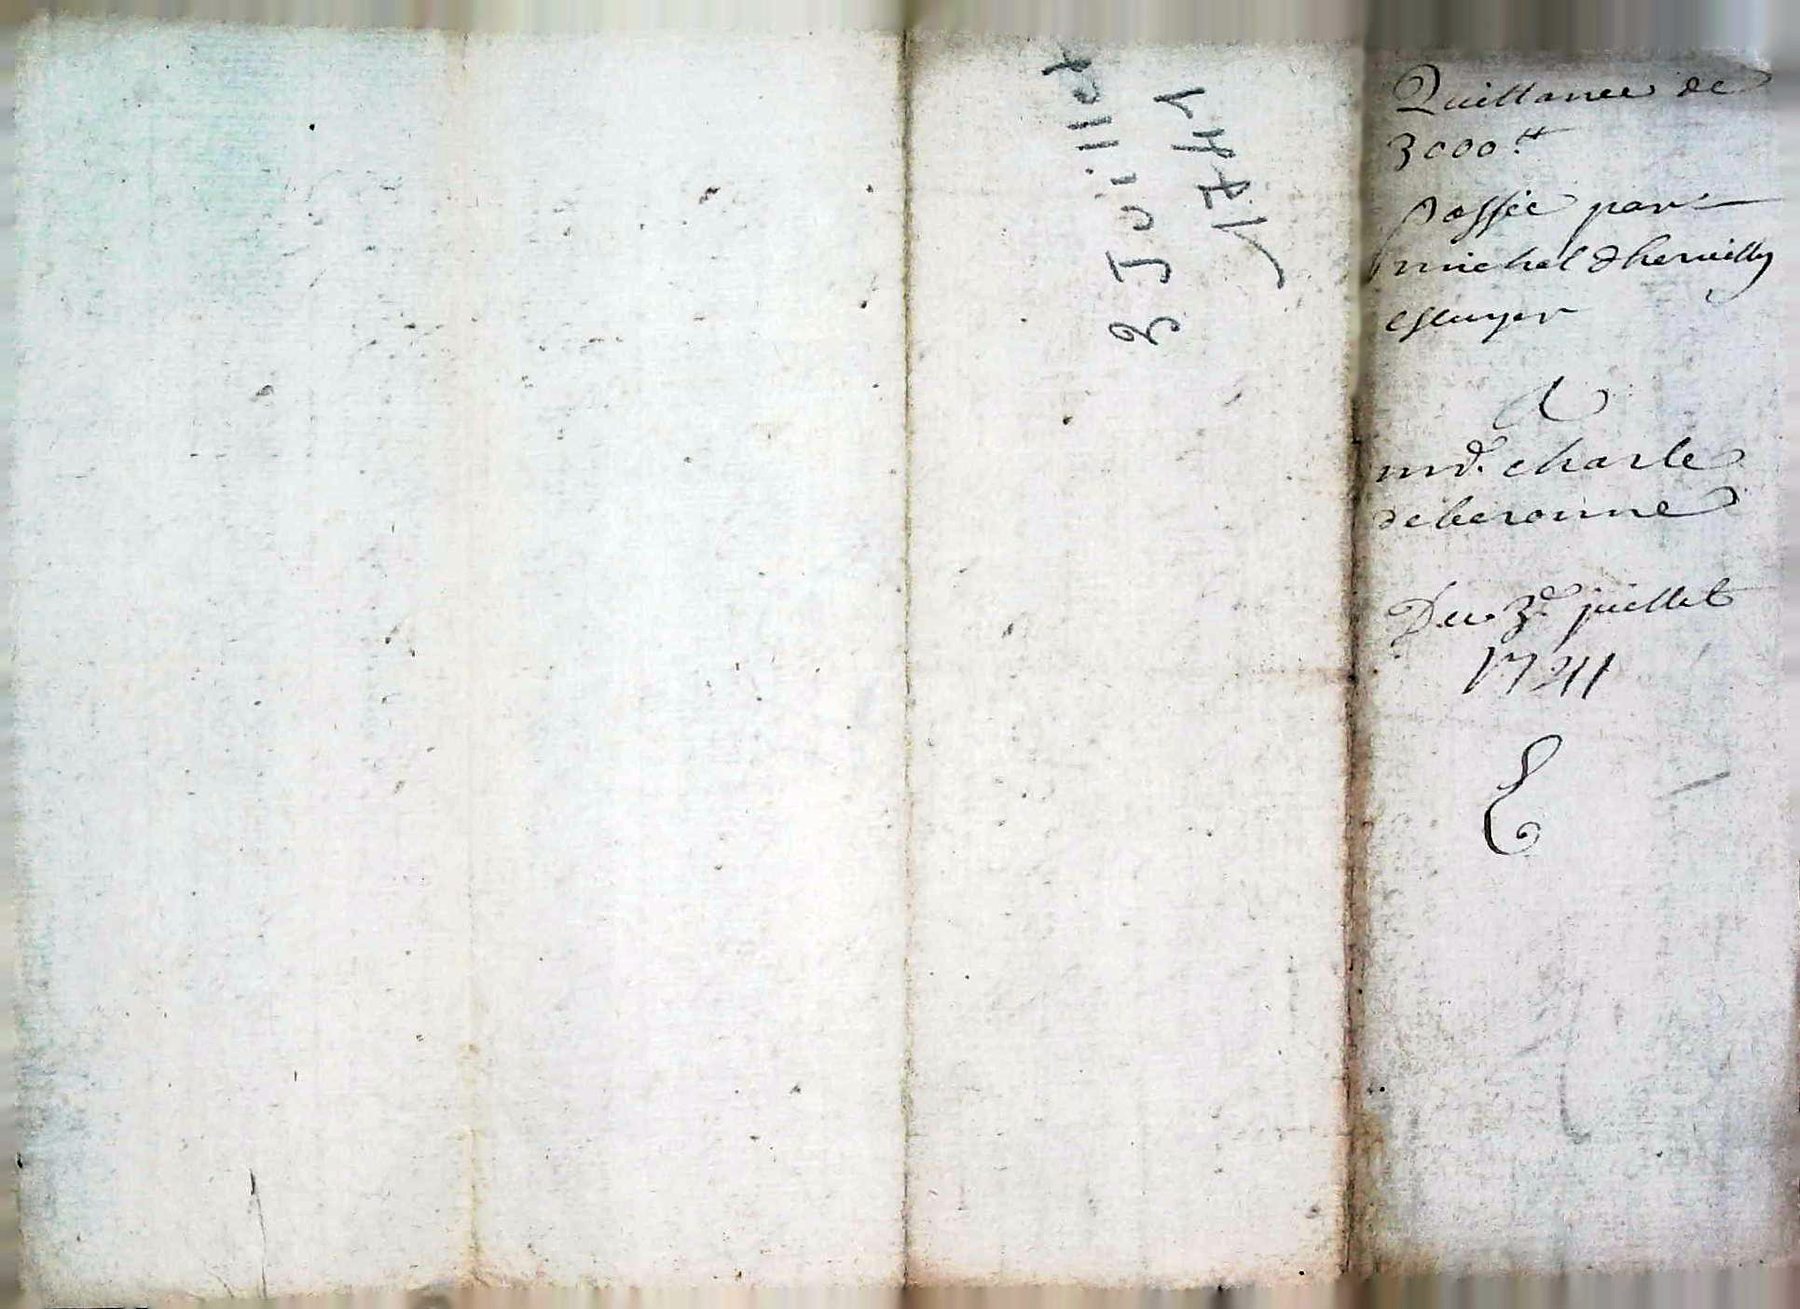 3 Juillet
1741
Quittance de
3000 ₶
passée par
michel dhervilly
escuyer
A
mr. charle
deberonne
Du 3e juillet
1741
E